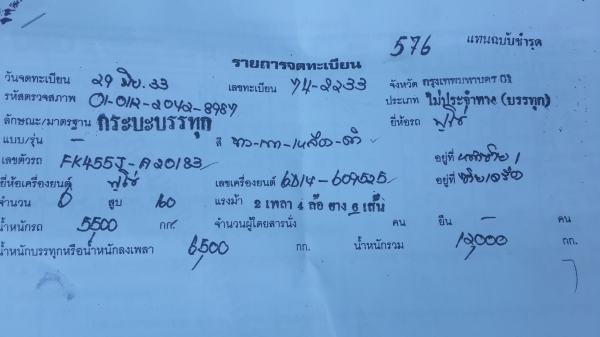 576 แทนฉบับชำรุด
รายการจดทะเบียน
วันจดทะเบียน 29 มิย. 33 เลขทะเบียน 74-2233 จังหวัด กรุงเทพมหานคร 01
รหัสตรวจสภาพ 01-012-2042-8987 ประเภท ไม่ประจำทาง (บรรทุก)
ลักษณะ/มาตรฐาน กระบะบรรทุก ยี่ห้อรถ ฟูโซ่
แบบ/รุ่น - สี ขาว-เทา-เหลือง-ดำ
เลขตัวรถ FK455J-A20183 อยู่ที่ 1
ยี่ห้อเครื่องยนต์ ฟูโซ่ เลขเครื่องยนต์ 6D14-609525 อยู่ที่
จำนวน 6 สูบ 160 แรงม้า 2 เพลา 4 ล้อ ยาง 6 เส้น
น้ำหนักรถ 5500 กก. จำนวนผู้โดยสารนั่ง คน ยืน - คน
น้ำหนักบรรทุกหรือน้ำหนักลงเพลา 6500 กก. น้ำหนักรวม 12,000 กก.